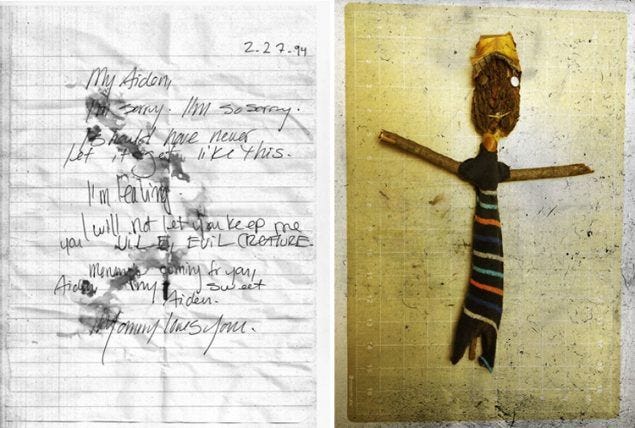 2.27.94
My Aiden,
I'm sorry. I'm so sorry.
I should have never
let it get like this.
I'm
I will not let you keep me
you VILE, EVIL CREATURE.
coming for you,
Aiden my sweet
Aiden.
Mommy loves you.